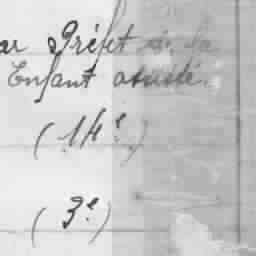 ar Préfet
Enfant assisté.
(14e)
(3e)